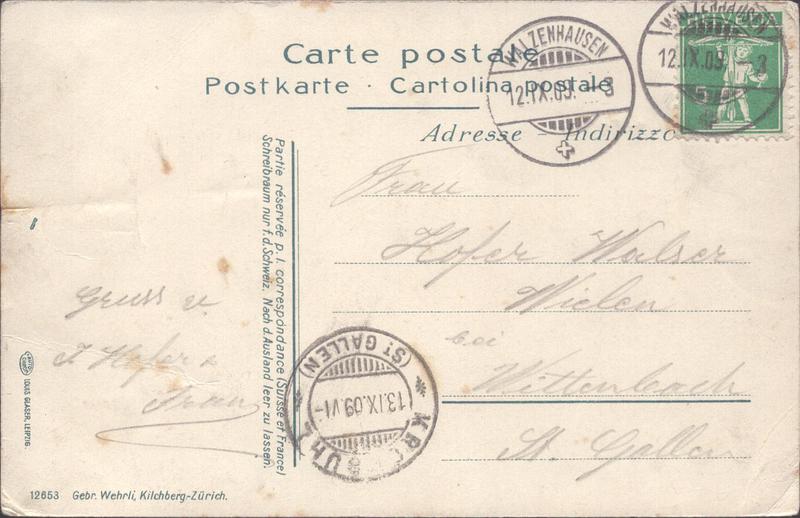 Carte postale
Postkarte · Cartolina postale
Adresse – Indirizzo
WALZENHAUSEN
12.IX.09. – 3
WALZENHAUSEN
12.IX.09. – 3
5
Partie réservée p. l. correspondance (Suisse et France)
Schreibraum nur f. d. Schweiz. Nach d. Ausland leer zu lassen.
Frau
Hofer Walser
Wielen
bei
Wittenbach
St. Gallen
Gruss v
J Hofer &
Frau
(ST. GALLEN)
13.IX.09.VI–
LOUIS GLASER, LEIPZIG.
12653 Gebr. Wehrli, Kilchberg-Zürich.